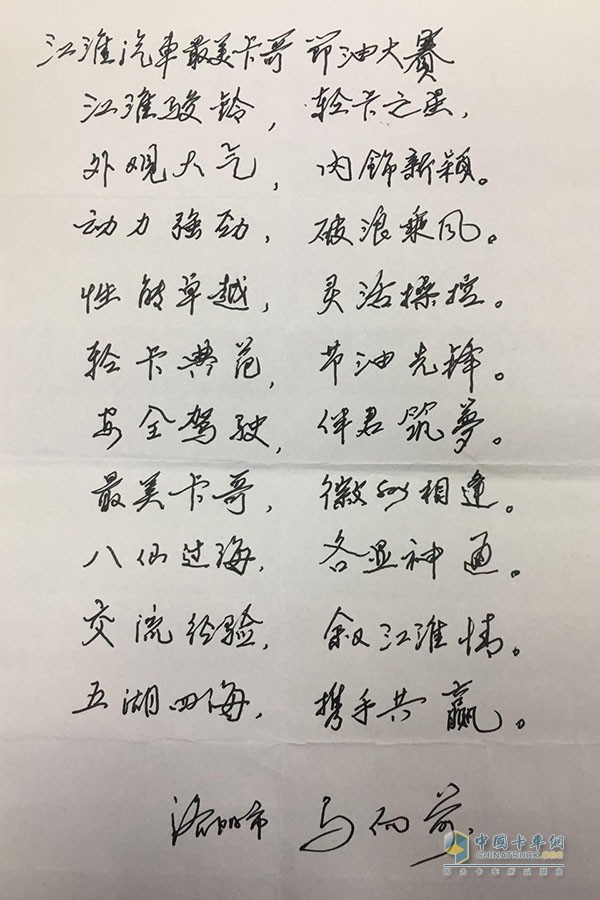 江淮汽車最美卡哥 節油大賽
江淮骏铃,轻卡之星,
外观大气,内饰新颖。
动力强劲,破浪乘风。
性能卓越,灵活操控。
轻卡典范,节油先锋。
安全驾驶,伴君筑夢。
最美卡哥,徽州相逢。
八仙过海,各显神通。
交流经验,叙江淮情。
五湖四海,携手共赢。
洛阳市 马向前
中国卡车网
CHINATRUCK.ORG